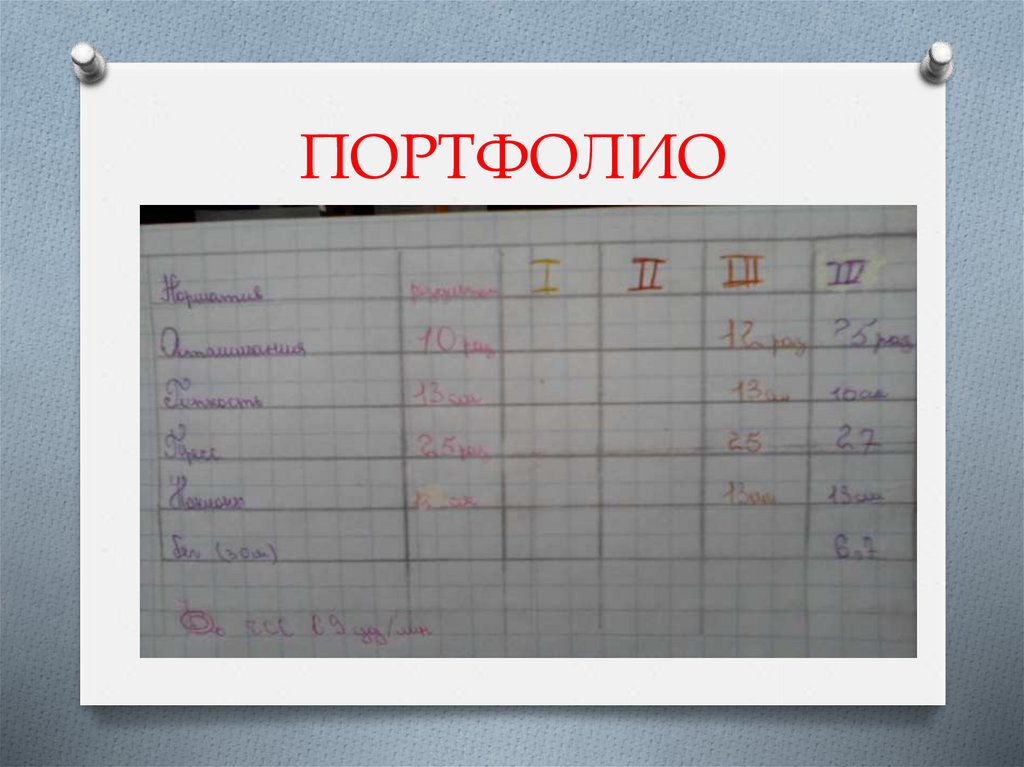 ПОРТФОЛИО
Норматив I II III IV
Отжимания 10 раз 12 раз 25 раз
Гибкость 13 см 13 см 10 см
Пресс 25 раз 25 27
Наклон 13 см 13 см 13 см
Бег (30м) 6,7
ЧСС 69 уд/мин